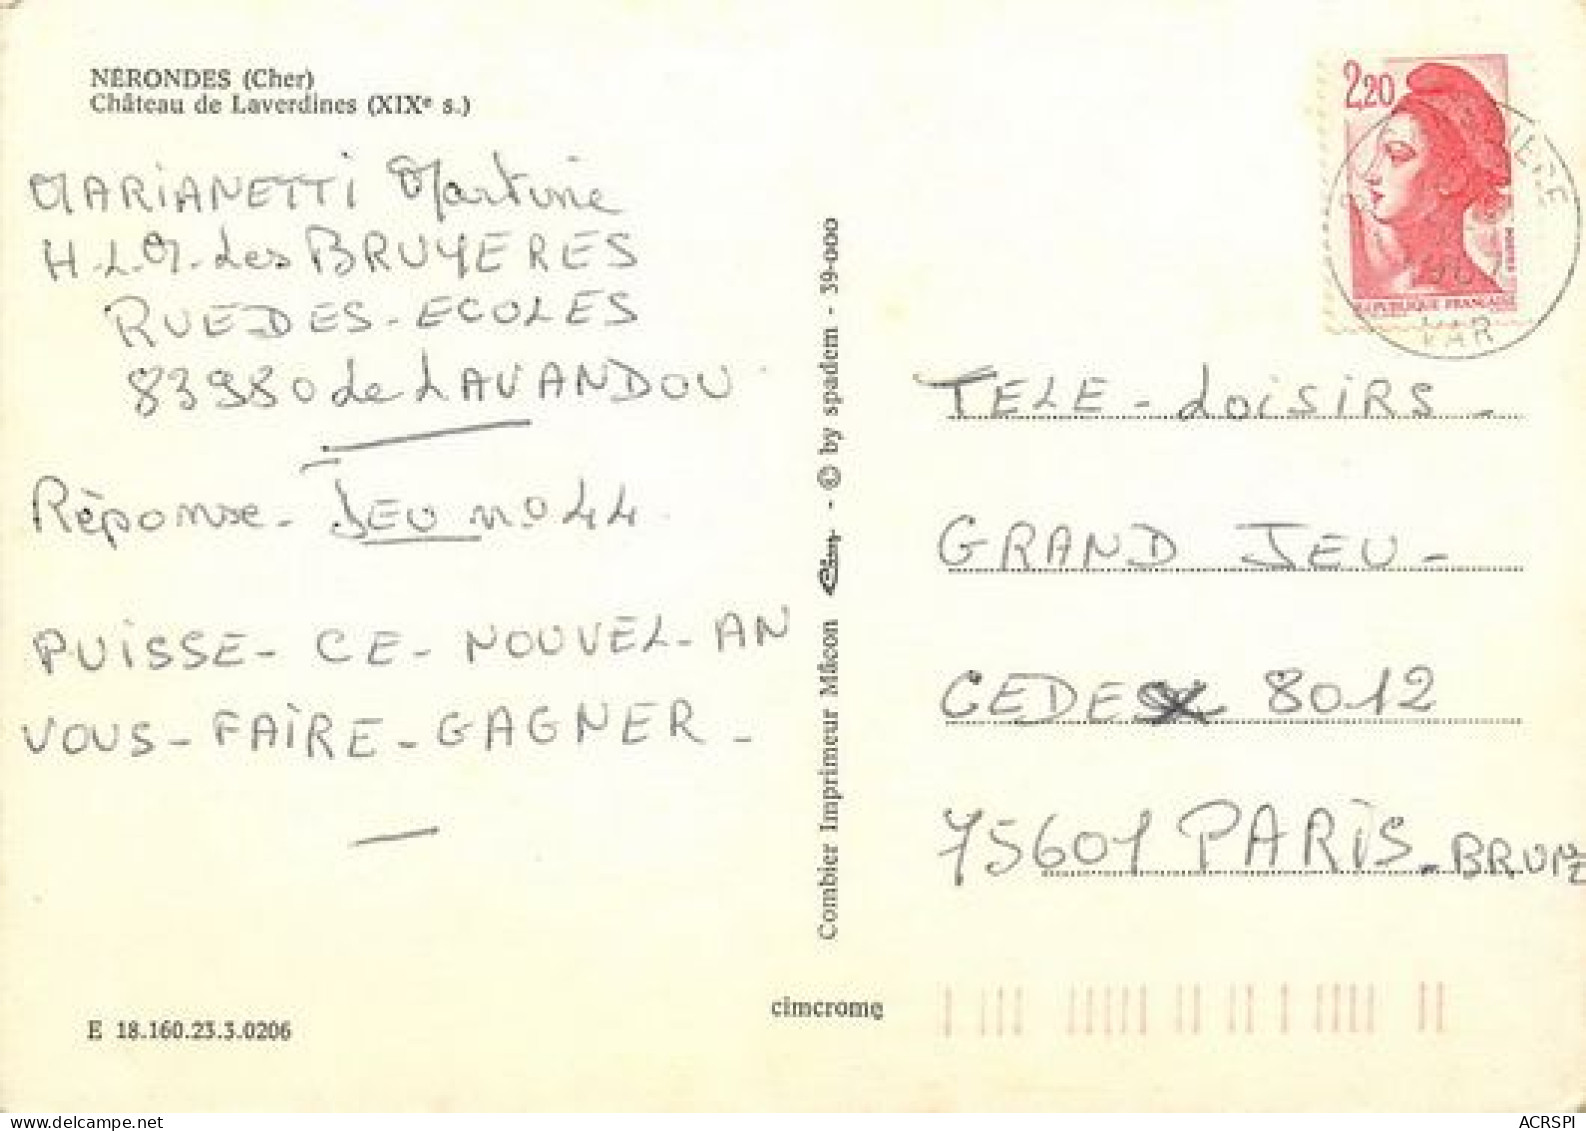 NÉRONDES (Cher)
Château de Laverdines (XIXe s.)
MARIANETTI Martine
H.L.M. Les BRUYERES
RUE DES - ECOLES
83980 Le LAVANDOU
Réponse - JEU no 44
PUISSE - CE - NOUVEL - AN
VOUS - FAIRE - GAGNER -
E 18.160.23.3.0206
Combier Imprimeur Mâcon - © by spadem - 39-000
cimcrome
2,20
RÉPUBLIQUE FRANÇAISE
VAR
TELE - LOISIRS -
GRAND JEU -
CEDEX 8012
75601 PARIS - BRUNE
delcampe.net
ACRSPI